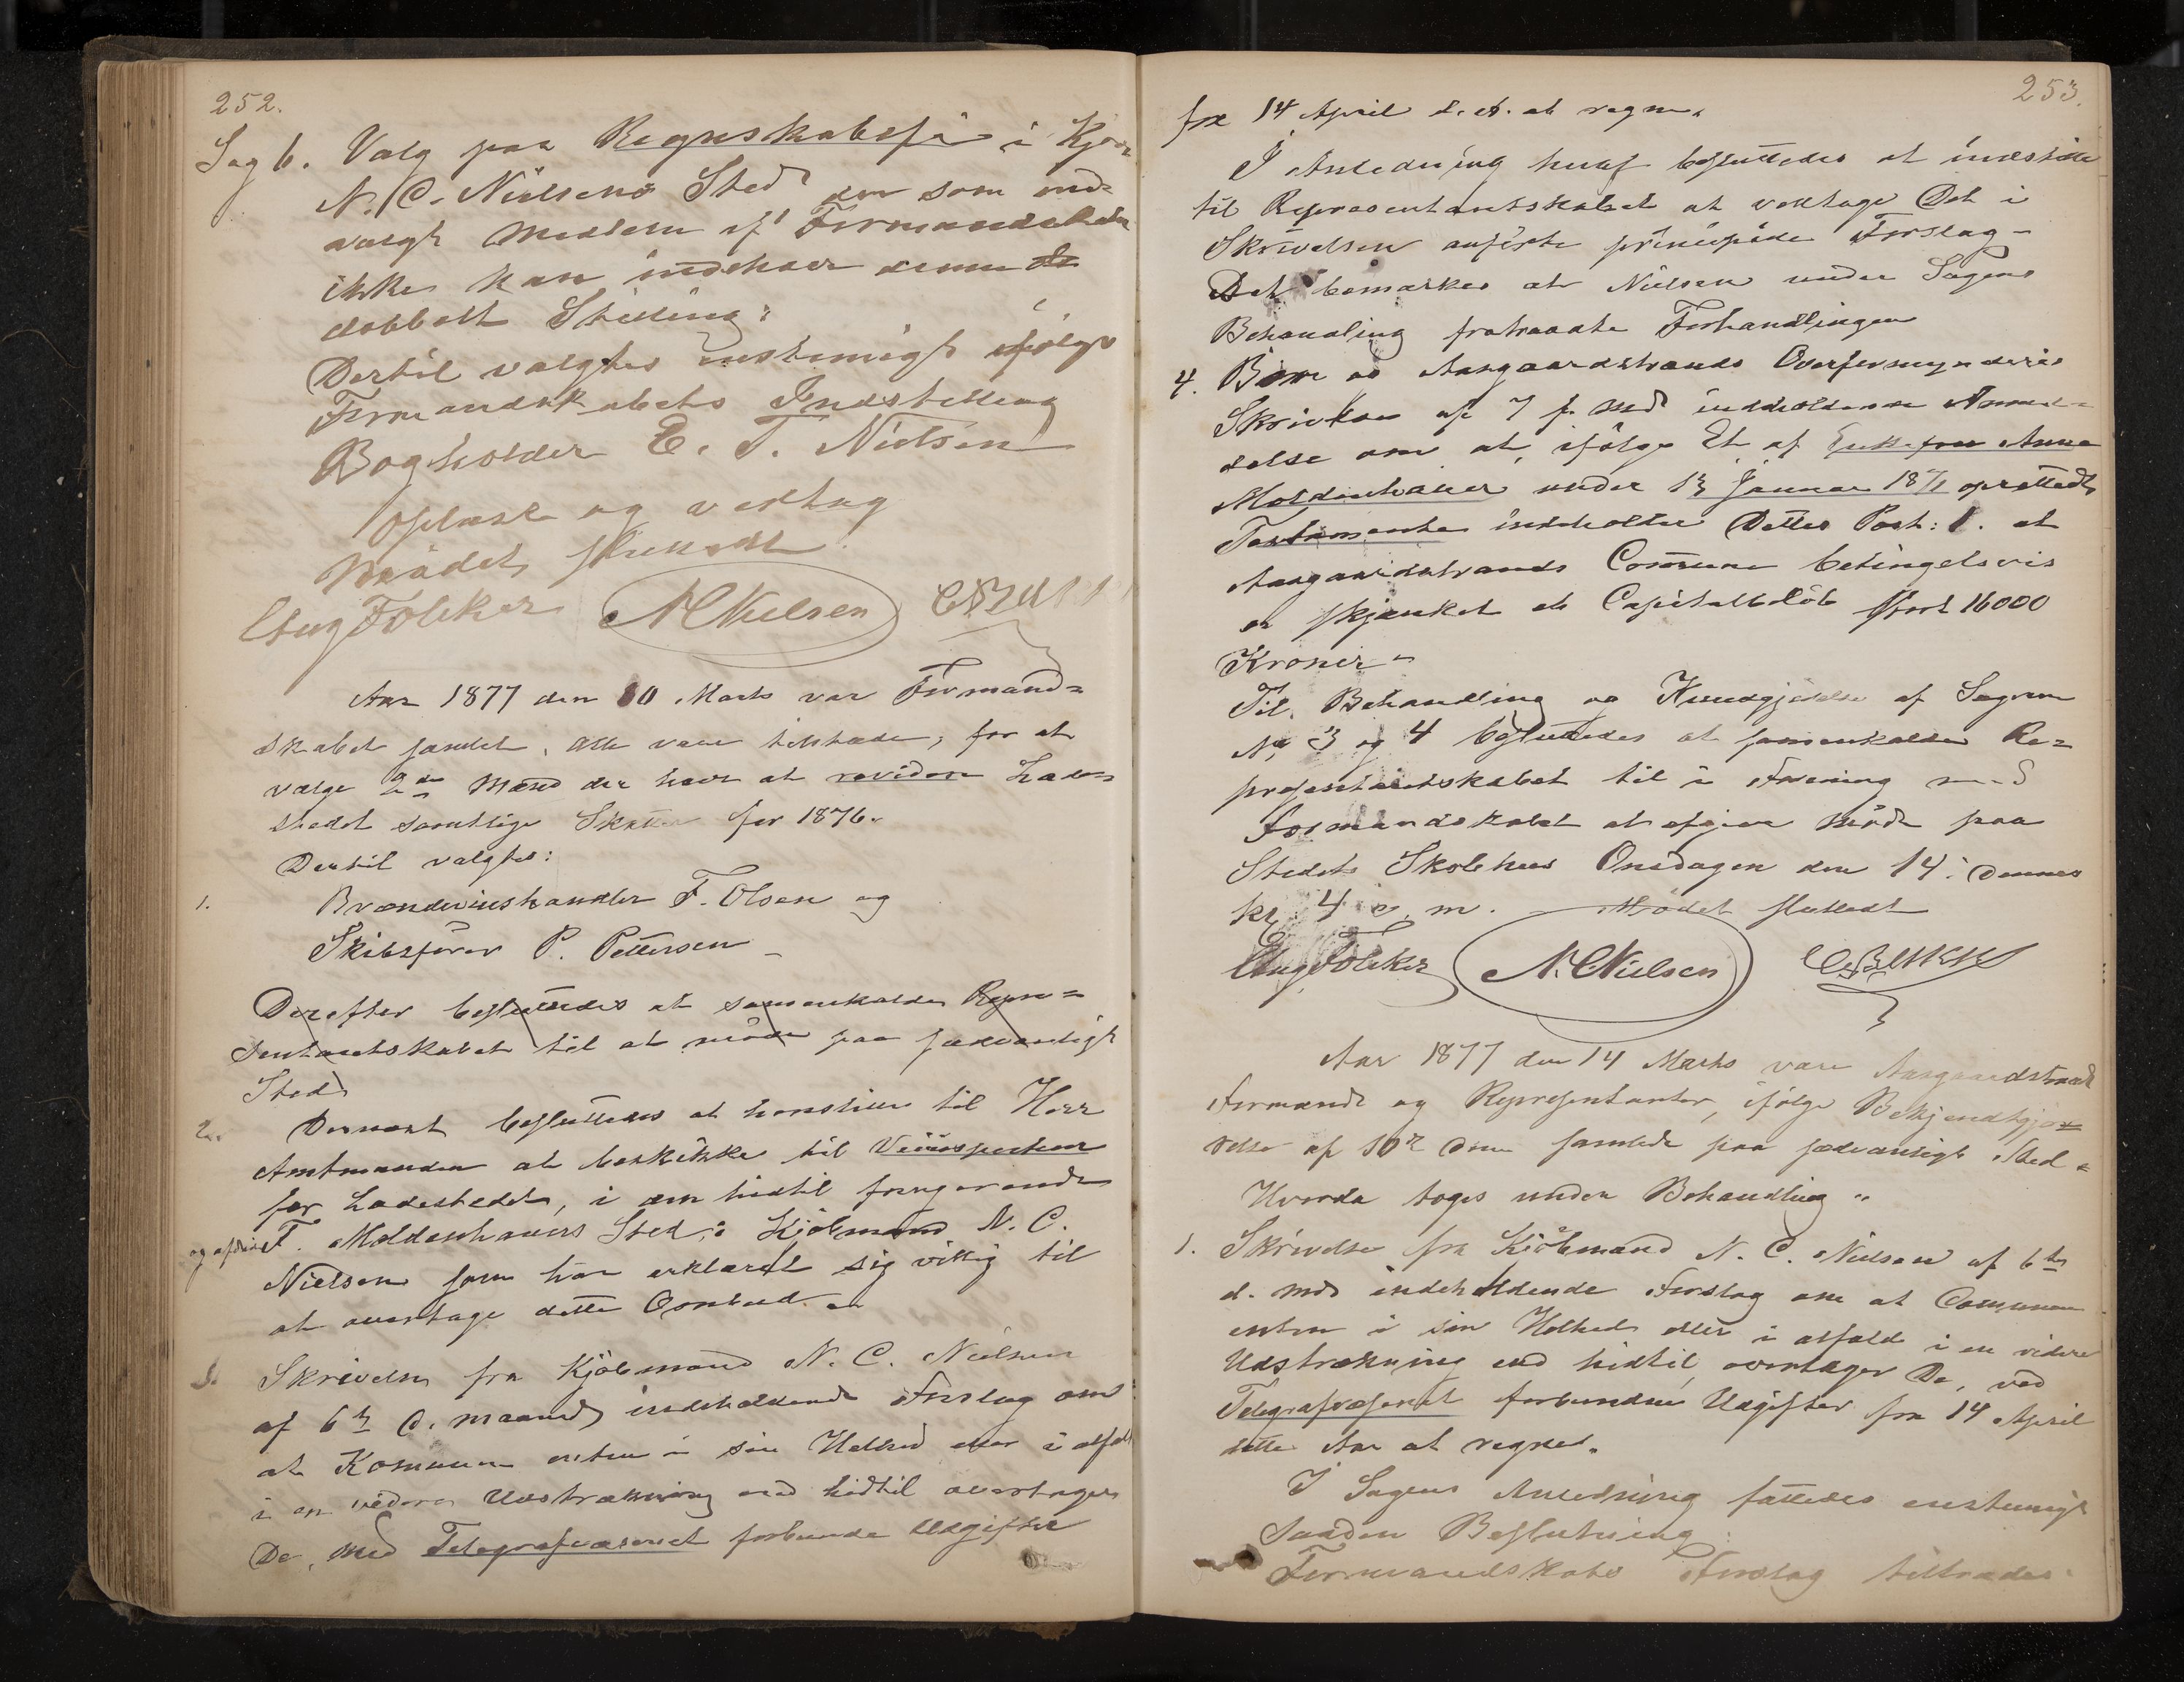 252.
Sag 6. Valg paa Regnskabsfører i Kjøbm
N. C. Nielsens Sted der som ind=
valgt Medlem af Formandskabet
ikke kan indehave denne
dobbelt Stilling:
Dertil valgtes enstemigt ifølge
Formandskabets Indstilling
Bogholder E. T. Nielsen
Oplæst og vedtag
Mødet sluttedt.
Aug Føleker N C Nielsen
Aar 1877 den 10 Marts var Formand=
skabet samlet, alle vare tilstæde, for at
vælge 2de Mænd der have at revidere Lade=
stedet samtlige Skatter for 1876.
Dertil valgtes:
1. Brændevinshandler F. Olsen og
Skibsfører P. Pettersen
Derefter besluttedes at sammenkalde Repre=
sentantskabet til at møde paa sædvanligt
Sted
2. Dernæst besluttedes at henstille til Herr
Amtmanden at beskikke til Veiinspecteur
for Ladestedet, i den hidtil fungerende
og afdøde F. Moldenhauers Sted: Kjøbmand N. C.
Nielsen som har erklæret sig villig til
at overtage dette Ombud
3. Skrivelse fra Kjøbmand N. C. Nielsen
af 6te d. maaned indeholdende Forslag om
at Komunen enten i sin Helhed eller i alfald
i en videre Udstrækning end hidtil overtager
De, med Telegrafvæsenet forbunde Udgifter
253.
fra 14 April d. A. at regne.
I Anledning heraf besluttedes at indstille
til Representantskabet at vedtage Det i
Skrivelsen anførte prinsipale Forslag –
Det bemærkes at Nielsen under Sagens
Behandling fratraadte Forhandlingen
4. Borre og Aasgaardstrands Overformynderies
Skrivelse af 7 f. Md indeholdende Anmel=
delse om at, ifølge Et af Enkefrue Anna
Moldenhauer under 13 Januar 1871 oprettedt
Testamente indeholder Dettes Post: 1. at
Aasgaardstrands Comune betingelsvis
er skjænket et Capitalbeløb stort 16000
Kroner
Til Behandling og Kundgjørelse af Sagerne
No 3 og 4 besluttedes at sammenkalde Re=
presentantskabet til i Forening med
Formandskabet at afgive Møde paa
Stedets Skolehus Onsdagen den 14. Dennes
kl 4 e. m. – Mødet sluttedt
Aug Føleker N. C Nielsen
Aar 1877 den 14 Marts vare Aasgaardstrands
Formænd og Representanter, ifølge Bekjendtgjø=
relse af 10de Dens samlede paa sædvanligt Sted
Hvorda toges under Behandling
1. Skrivelse fra Kjøbmand N. C. Nielsen af 6te
d. Md indeholdende Forslag om at Comunen
enten i sin Helhed eller i alfald i en videre
Udstrækning end hidtil, overtager De, ved
Telegrafvæsenet forbundne Udgifter fra 14 April
dette Aar at regnes.
I Sagens Anledning fattedes enstemigt
Saadan Beslutning:
Formandskabs Forslag tiltrædes.